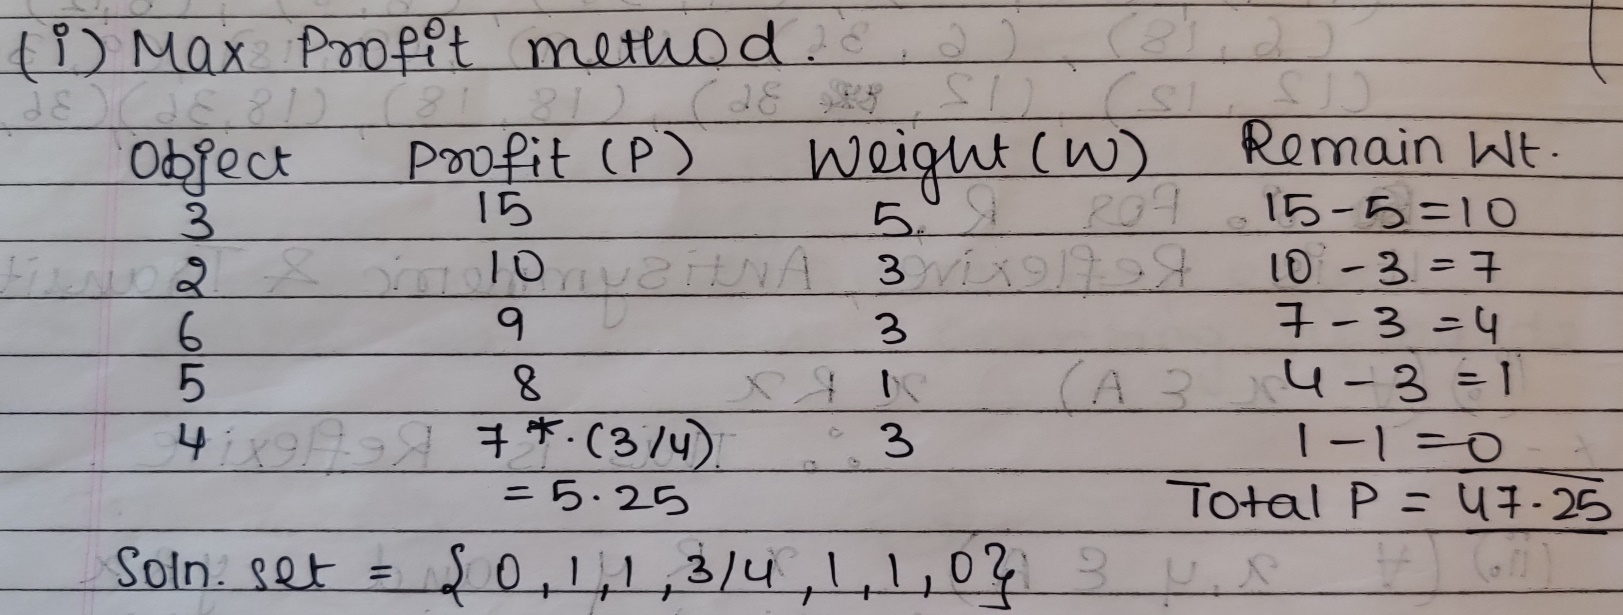 (i) Max Profit method.
Object Profit (P) Weight (W) Remain Wt.
3 15 5 15-5=10
2 10 3 10-3=7
6 9 3 7-3=4
5 8 1 4-3=1
4 7*.(3/4) 3 1-1=0
=5.25 Total P = 47.25
Soln. set = {0,1,1,3/4,1,1,0}